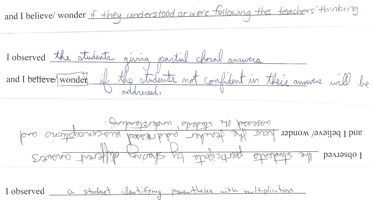 and I believe/ wonder if they understood or were following the teachers' thinking.
I observed the students giving partial choral answers
and I believe/ wonder if the students not confident in their answers will be
addressed.
I observed the students participate by sharing different answers
and I believe/ wonder how the teacher addressed misconceptions and
assessed the students understanding
I observed a student identifying parentheses with multiplication